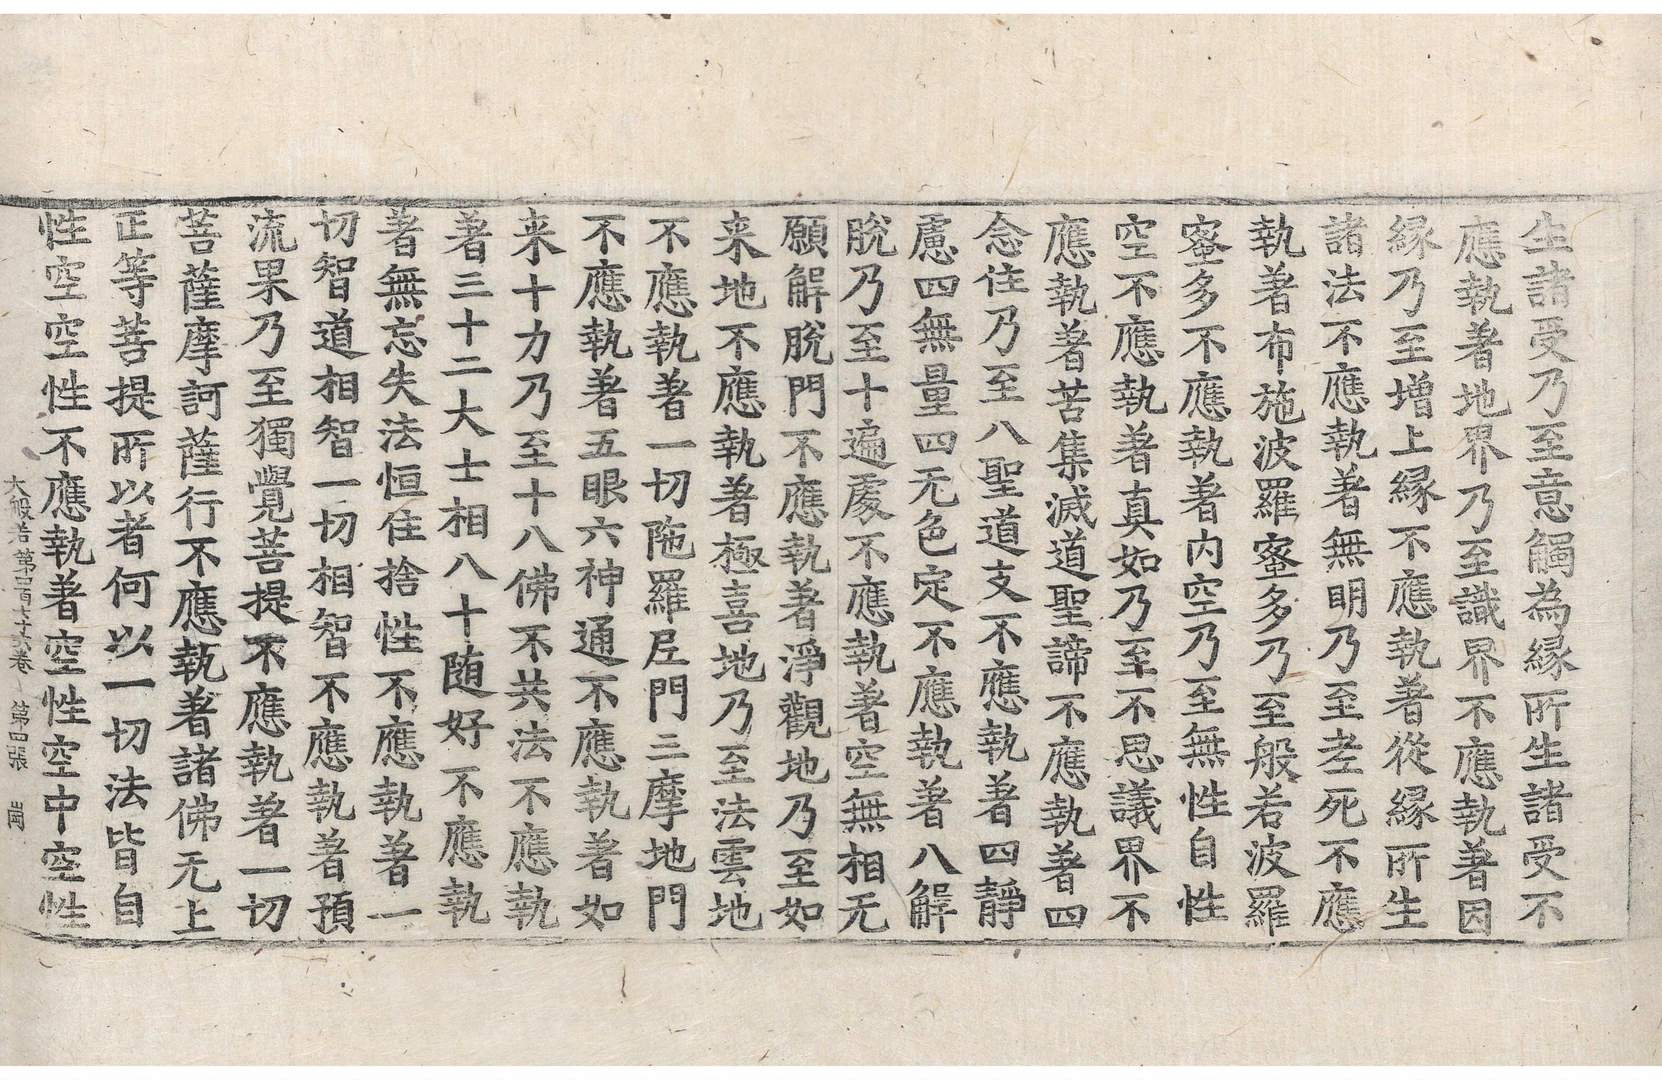 生諸受乃至意觸為縁所生諸受不
應執著地界乃至識界不應執著因
縁乃至增上縁不應執著從縁所生
諸法不應執著無明乃至老死不應
執著布施波羅蜜多乃至般若波羅
蜜多不應執著內空乃至無性自性
空不應執著真如乃至不思議界不
應執著苦集滅道聖諦不應執著四
念住乃至八聖道支不應執著四靜
慮四無量四无色定不應執著八解
脫乃至十遍處不應執著空無相无
願解脫門不應執著淨觀地乃至如
来地不應執著極喜地乃至法雲地
不應執著一切陁羅尼門三摩地門
不應執著五眼六神通不應執著如
来十力乃至十八佛不共法不應執
著三十二大士相八十随好不應執
著無忘失法恒住捨性不應執著一
切智道相智一切相智不應執著預
流果乃至獨覺菩提不應執著一切
菩薩摩訶薩行不應執著諸佛无上
正等菩提所以者何以一切法皆自
性空空性不應執著空性空中空性
大般若第四百七十六卷 第四張 崗